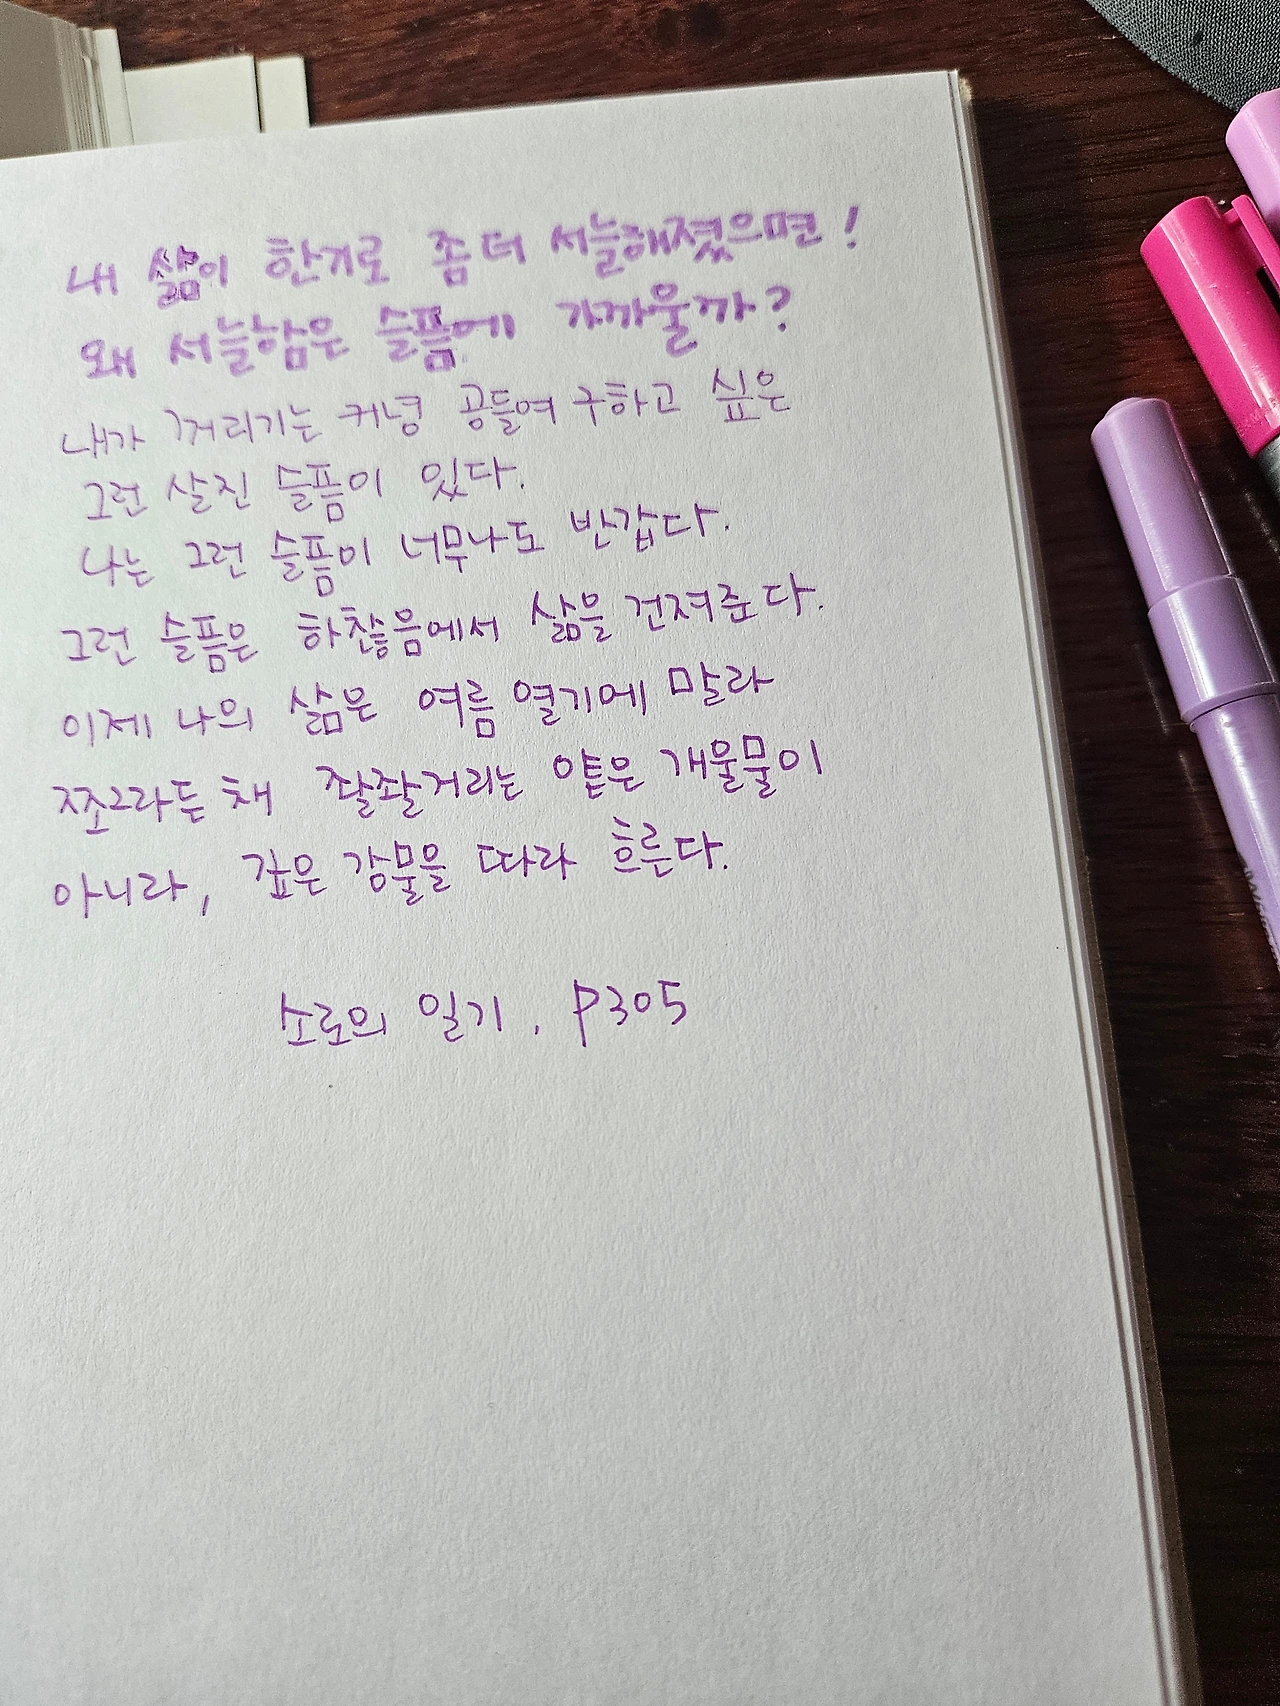 내 삶이 한기로 좀 더 서늘해졌으면!
왜 서늘함은 슬픔에 가까울까?
내가 꺼리기는 커녕 공들여 구하고 싶은
그런 살진 슬픔이 있다.
나는 그런 슬픔이 너무나도 반갑다.
그런 슬픔은 하찮음에서 삶을 건져준다.
이제 나의 삶은 여름 열기에 말라
쪼그라든 채 좔좔거리는 얕은 개울물이
아니라, 깊은 강물을 따라 흐른다.
소로의 일기. P305